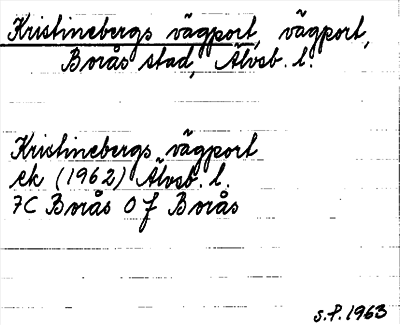 Kristinebergs vägport, vägport,
Borås stad, Älvsb. l.
Kristinebergs vägport
ek (1962) Älvsb. l.
7C Borås O f Borås
s. f. 1963